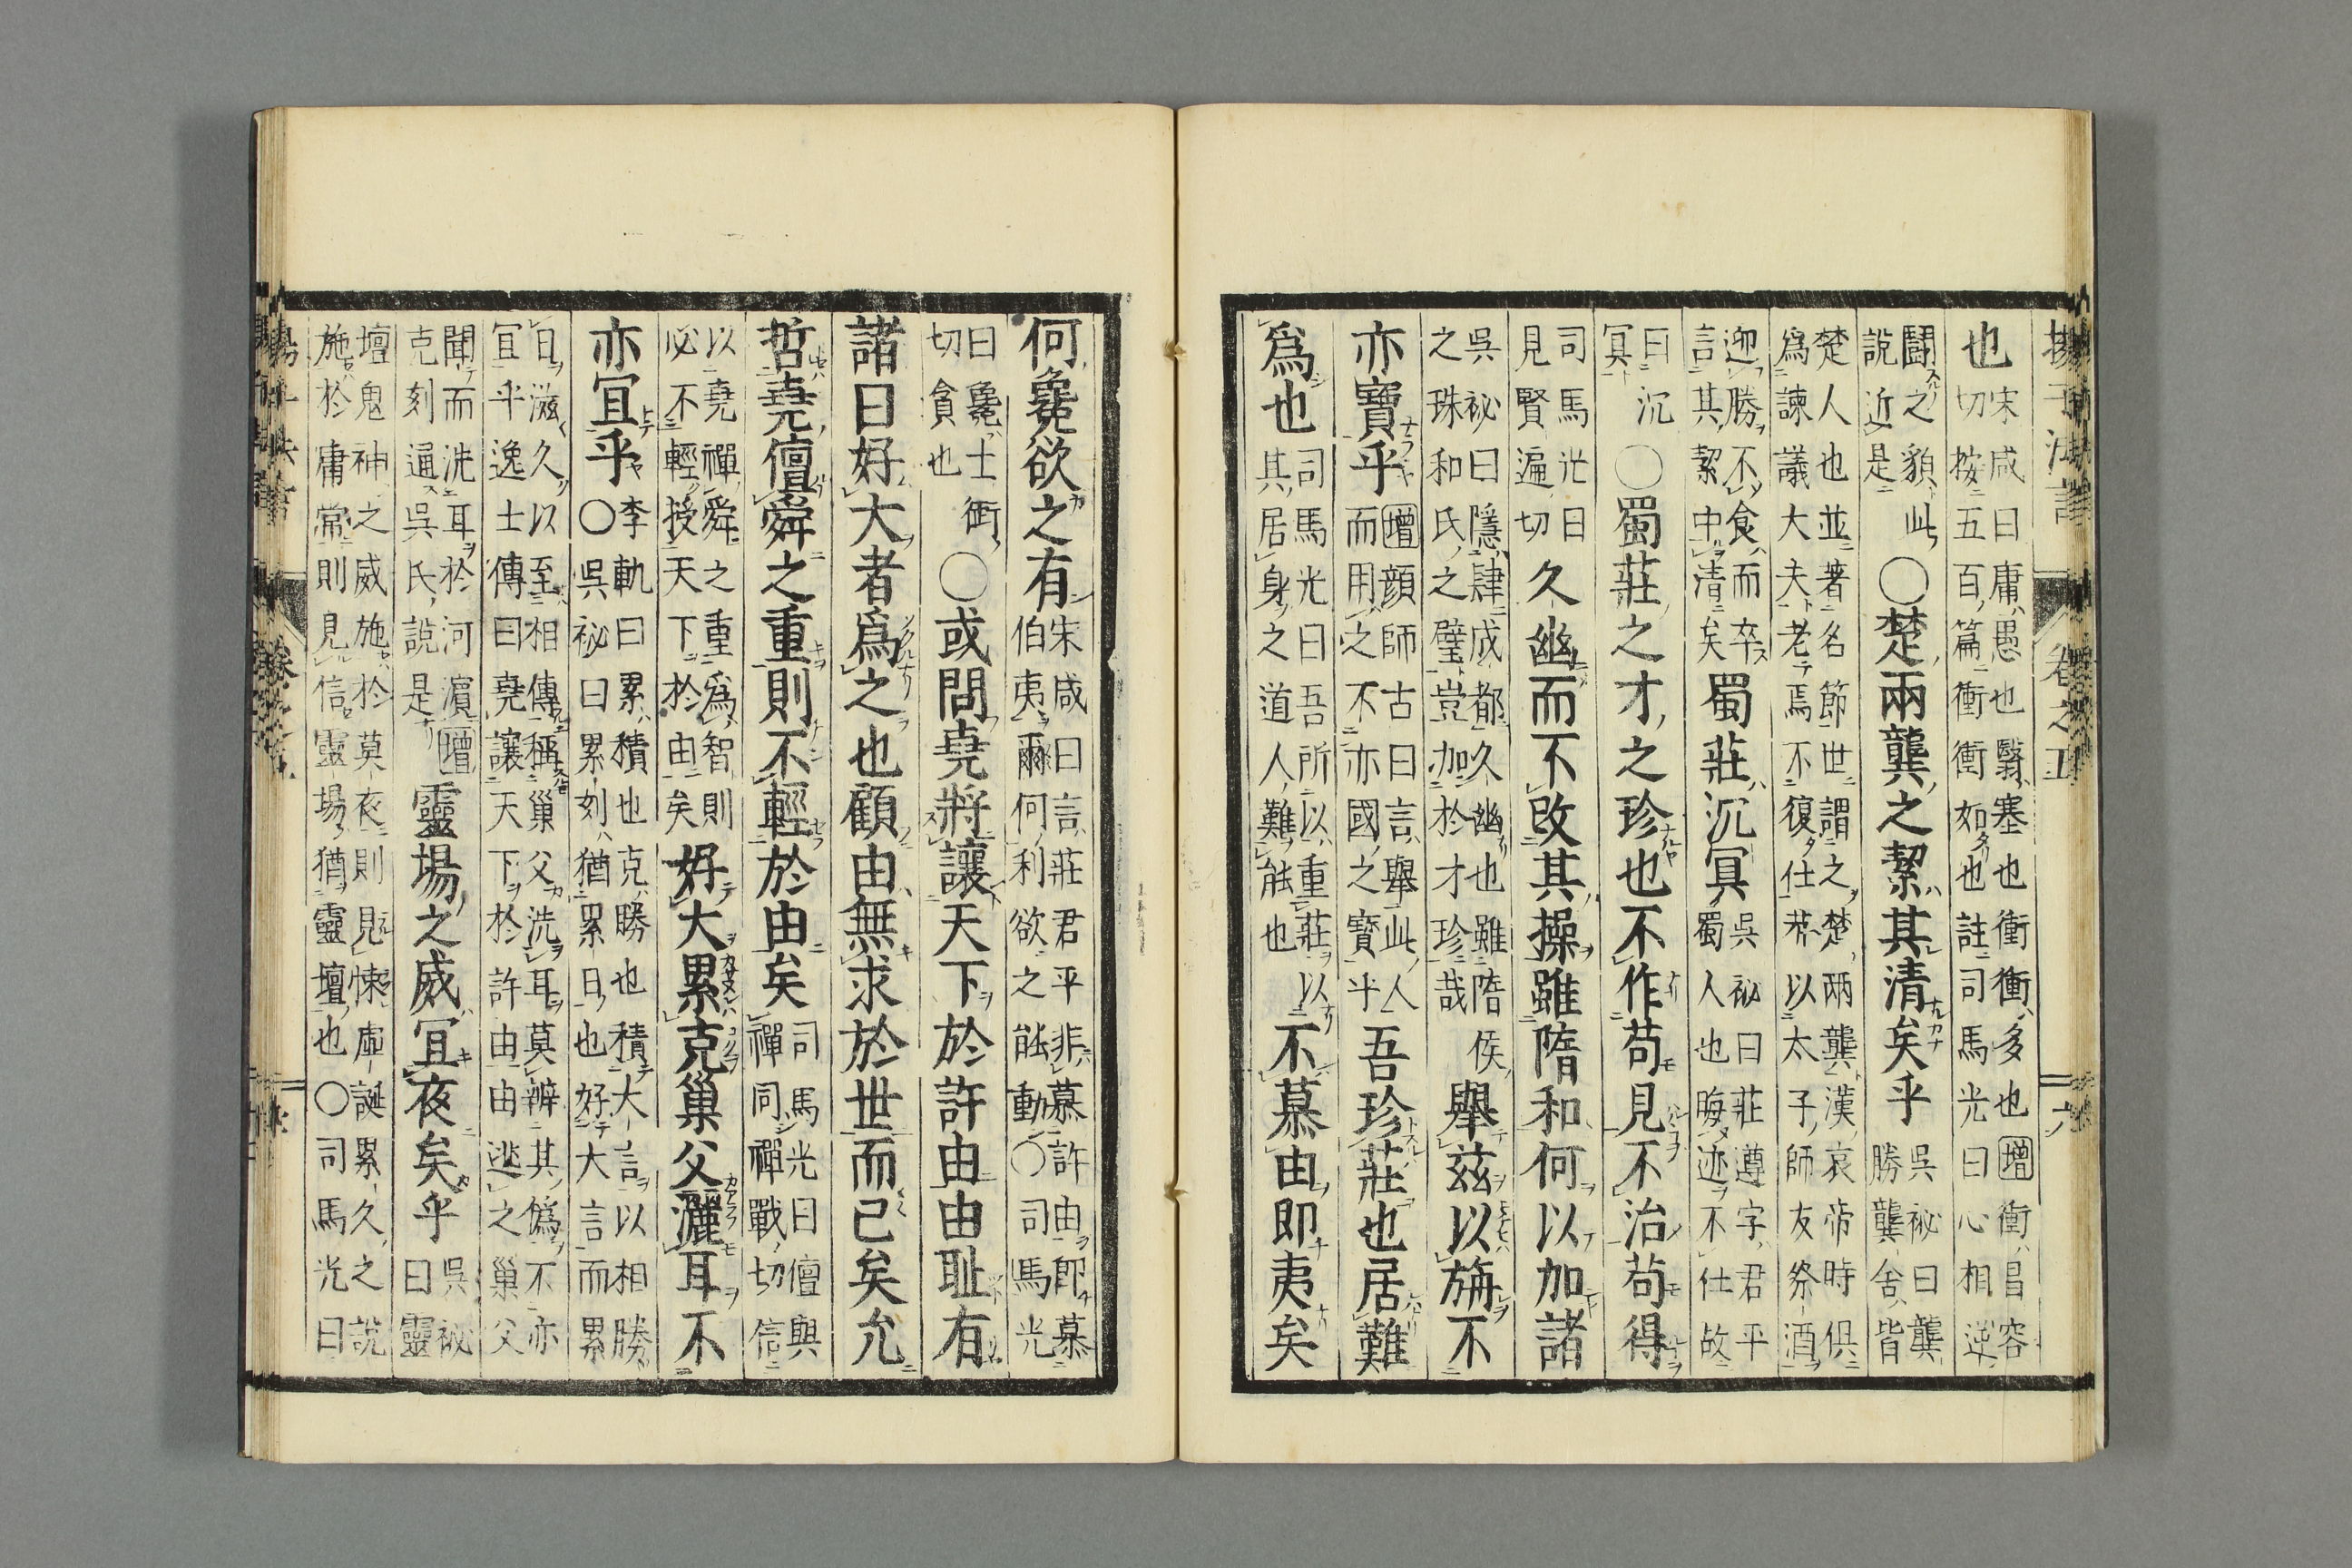 揚子法言 卷之五 六
也 宋咸曰庸愚也翳塞也衝衝多也增衝昌容
切按五百篇衝衝如也註司馬光曰心相逆
鬭之貌此
說近是 ○楚兩龔之絜其清矣乎 吳祕曰龔
勝龔舍皆
楚人也並著名節世謂之楚兩龔漢哀帝時俱
爲諫議大夫老焉不復仕莽以太子師友祭酒
迎勝不食而卒
言其絜中清矣 蜀莊沉冥 吳祕曰莊遵字君平
蜀人也晦迹不仕故
曰沉
冥 ○蜀莊之才之珍也不作苟見不治苟得
司馬光曰
見賢遍切 久幽而不改其操雖隋和何以加諸
吳祕曰隱肆成都久幽也雖隋侯
之珠和氏之璧豈加於才珍哉 舉茲以旃不
亦寶乎 增顔師古曰言舉此人
而用之不亦國之寶乎 吾珍莊也居難
爲也 司馬光曰吾所以重莊以
其居身之道人難能也 不慕由卽夷矣
何毚欲之有 宋咸曰言莊君平非慕許由卽慕
伯夷爾何利欲之能動○司馬光
曰毚士銜
切貪也 ○或問堯將讓天下於許由由耻有
諸曰好大者爲之也顧由無求於世而已矣允
哲堯儃舜之重則不輕於由矣 司馬光曰儃與
禪同禪戰切信
以堯禪舜之重爲智則
必不輕授天下於由矣 好大累克巢父灑耳不
亦宜乎 李軌曰累積也克勝也積大言以相勝
○吳祕曰累刻猶累日也好大言而累
日滋久以至相傳稱巢父洗耳莫辨其僞不亦
宜乎逸士傳曰堯讓天下於許由由逃之巢父
聞而洗耳於河濱增
克刻通吳氏說是 靈場之威宜夜矣乎 吳祕
曰靈
壇鬼神之威施於莫夜則見悚庫誕累久之說
施於庸常則見信靈場猶靈壇也○司馬光曰